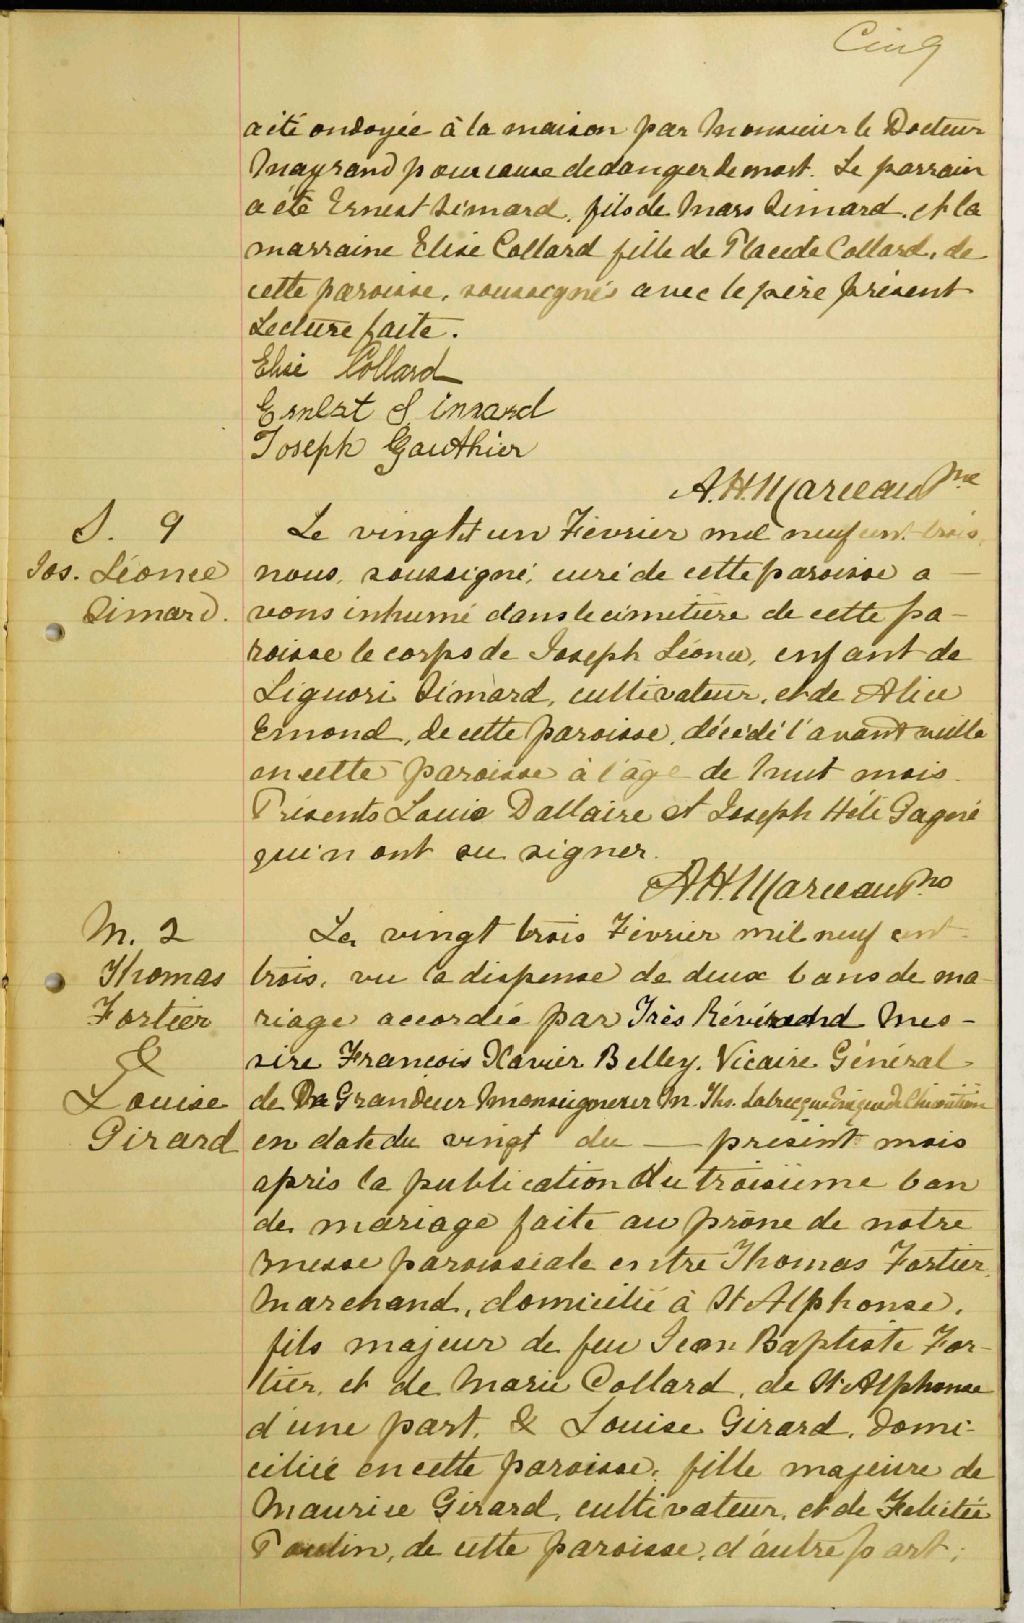 Cinq
a été ondoyée à la maison par Monsieur le Docteur
Mayrand pour cause de danger de mort. Le parrain
a été Ernest Simard, fils de Mars Simard, et la
marraine Elise Collard fille de Placide Collard, de
cette paroisse, soussignés avec le père présent
Lecture faite.
Elise Collard
Ernest Simard
Joseph Gauthier
A.H. Marceau Ptre
S. 9
Jos. Léonce
Simard.
Le vingt et un Février mil neuf cent-trois,
nous, soussigné, curé de cette paroisse a
vons inhumé dans le cimetière de cette pa-
roisse le corps de Joseph Léonce, enfant de
Liguori Simard, cultivateur, et de Alice
Emond, de cette paroisse, décédé l'avant veille
en cette paroisse à l'âge de huit mois.
Présents Louis Dallaire et Joseph Héli Gagné
qui n'ont su signer.
A.H. Marceau Ptre
M. 2
Thomas
Fortier
&
Louise
Girard
Le vingt trois Février mil neuf cent-
trois, vu la dispense de deux bans de ma
riage accordée par Très Révérend Mes-
sire François Xavier Belley, Vicaire Général
de Sa Grandeur Monseigneur M. Ths. Labrecque Evêque de Chicoutimi
en date du vingt du — présent mois
après la publication du troisième ban
de mariage faite au prône de notre
messe paroissiale entre Thomas Fortier,
Marchand, domicilié à St Alphonse,
fils majeur de feu Jean Baptiste For-
tier, et de Marie Collard, de St Alphonse
d'une part, & Louise Girard, domi-
ciliée en cette paroisse, fille majeure de
Maurice Girard, cultivateur, et de Felicitée
Poulin, de cette paroisse, d'autre part;